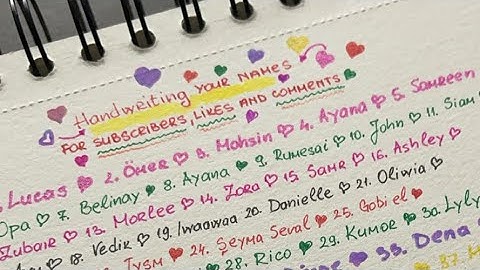 Handwriting YOUR NAMES
FOR SUBSCRIBERS, LIKES AND COMMENTS
Lucas 2. Ömer 3. Mohsin 4. Ayana 5. Samreen
Opa 7. Belinay 8. Ayana 9. Rumesai 10. John 11. Siam
Zubair 13. Morlee 14. Zora 15. Samr 16. Ashley
18. Vedir 19. Iwaawaa 20. Danielle 21. Oliwia
24. Şeyma Seval 25. Gobiel
28. Rico 29. Kumor 30. Lyly
33. Dena